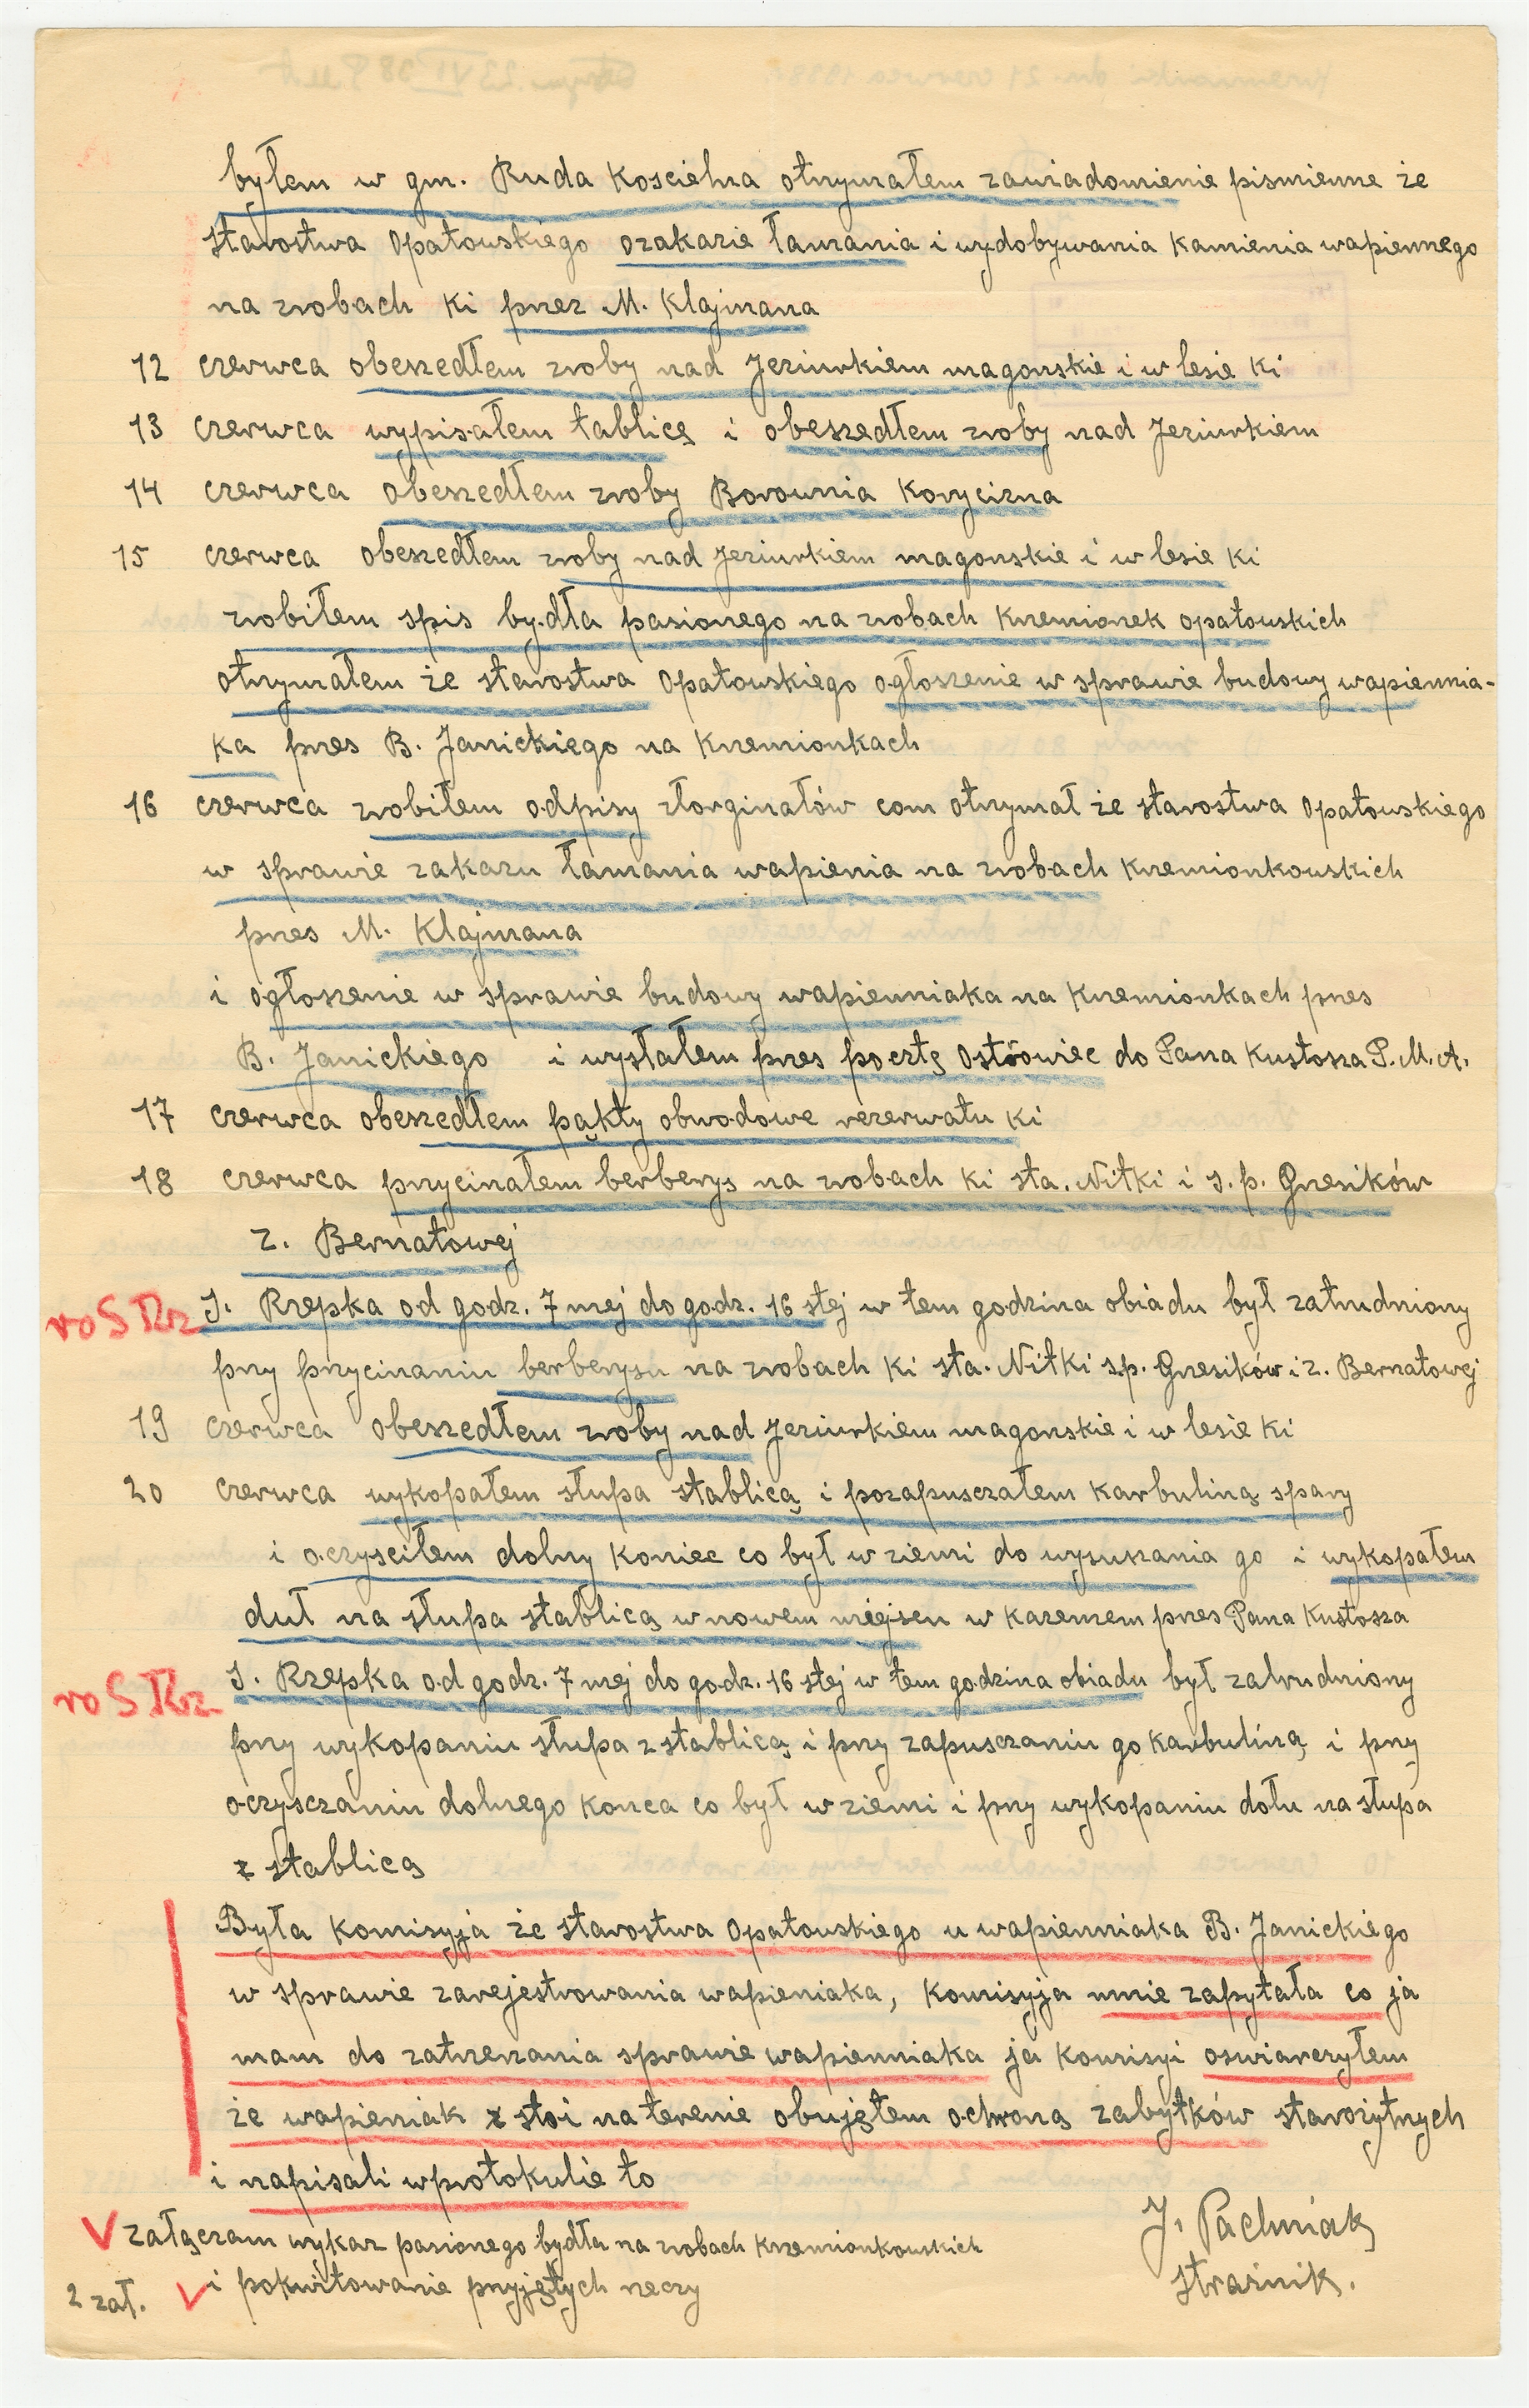 byłem w gm. Ruda Koscielna otrzymałem zawiadomienie pismienne że
starostwa Opatowskiego ozakazie łamania i wydobywania Kamienia wapiennego
na zrobach Ki przez M. Klajmana
12 czerwca obeszedłem zroby nad Jeziurkiem magonskie i w lesie Ki
13 czerwca wypisałem tablicę i obeszedłem zroby nad Jeziurkiem
14 czerwca obeszedłem zroby Borownia Korycizna
15 czerwca obeszedłem zroby nad Jeziurkiem magonskie i w lesie Ki
zrobiłem spis bydła pasionego na zrobach Krzemionek opatowskich
otrzymałem że starostwa Opatowskiego ogłoszenie w sprawie budowy wapiennia-
ka przes B. Janickiego na Krzemionkach
16 czerwca zrobiłem odpisy złorginałów com otrzymał że starostwa Opatowskiego
w sprawie zakazu łamania wapienia na zrobach Krzemionkowskich
przes M. Klajmana
i ogłoszenie w sprawie budowy wapienniaka na Krzemionkach przes
B. Janickiego i wysłałem przes pocztę Ostrowiec do Pana Kustosza P.M.A.
17 czerwca obeszedłem pąkty obwodowe rezerwatu Ki
18 czerwca przycinałem berberys na zrobach Ki sta. Nitki i s. p. Grzesików
z. Bernatowej
roS Rz S. Rzepka od godz. 7 mej do godz. 16 stej w tem godzina obiadu był zatrudniony
przy przycinaniu berberysu na zrobach Ki sta. Nitki s.p. Grzesików i z. Bernatowej
19 czerwca obeszedłem zroby nad Jeziurkiem magonskie i w lesie Ki
20 czerwca wykopałem słupa stablicą i pozapuszczałem Karbuliną spary
i oczysciłem dolny Koniec co był w ziemi do wysuszania go i wykopałem
duł na słupa stablicą w nowem miejscu w Kazemem przes Pana Kustosza
roS Rz S. Rzepka od godz. 7 mej do godz. 16 stej w tem godzina obiadu był zatrudniony
przy wykopaniu słupa z stablicą i przy zapusczaniu go Karbuliną i przy
oczysczaniu dolnego Konca co był w ziemi i przy wykopaniu dołu na słupa
z stablicą
Była Komisyja że starostwa Opatowskiego u wapienniaka B. Janickiego
w sprawie zarejestrowania wapieniaka, Komisyja mnie zapytała co ja
mam do zatrzerzania sprawie wapienniaka ja Komisyi oswiarczyłem
że wapieniak stoi na terenie objętem ochroną zabytków starożytnych
i napisali wprotokulie to
załączam wykaz pasionego bydła na zrobach Krzemionkowskich
i pokwitowanie przyjętych rzeczy
2 zał.
J. Pachniak
strażnik.